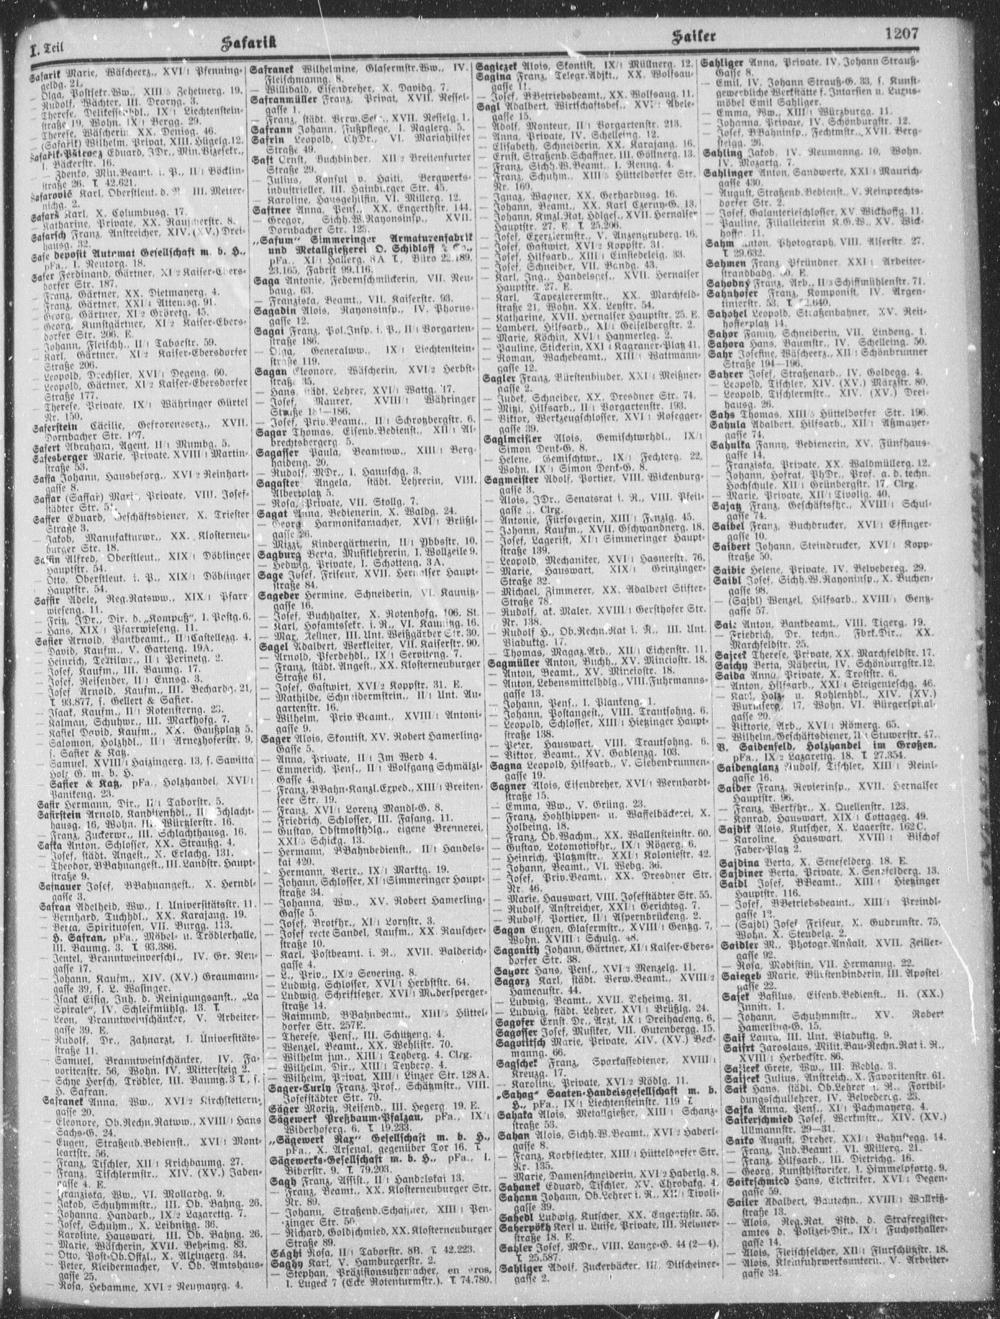 I. Teil
Safarik
Sailer
1207
Safarik Marie, Wäscheerz., XVI/1 Pfenning-
geldg. 21.
— Olga, Postsekr.Ww., XIII/5 Zehetnerg. 19.
— Rudolf, Wächter, III. Drorng. 3.
— Therese, Wäscherin, XX. Denisg. 46.
— (Safařik) Wilhelm, Privat, XIII. Hügelg. 12.
Bäckerstr. 16.
Safarovič Karl, Oberstleut. d. R., III. Meiter-
nichg. 2.
Safarš Karl, X. Columbusg. 17.
Safarsch Franz, Anstreicher, XIV. (XV.) Drei-
hausg. 32.
Safe deposit Automat Gesellschaft m. b. H.,
pFa., I. Neutorg. 18.
Safer Ferdinand, Gärtner, XI/2 Kaiser-Ebers-
dorfer Str. 187.
— Franz, Gärtner, XX. Dietmayerg. 4.
— Franz, Gärtner, XXI/1 Attensg. 91.
— Georg, Gärtner, XI/2 Gröretg. 45.
— Georg, Kunstgärtner, XI/2 Kaiser-Ebers-
dorfer Str. 206. E.
— Johann, Fleischh., II/1 Taborstr. 59.
— Karl, Gärtner, XI/2 Kaiser-Ebersdorfer
Straße 206.
— Leopold, Drechsler, XVI/1 Degeng. 60.
— Leopold, Gärtner, XI/2 Kaiser-Ebersdorfer
Straße 177.
— Therese, Private, IX/1 Währinger Gürtel
Nr. 150.
Saferstein Cäcilie, Gefroreneserz., XVII.
Dornbacher Str. 107.
Safert Abraham, Agent, II/1 Mumbg. 5.
Safesberger Marie, Private, XVIII/1 Martin-
straße 53.
Saffa Johann, Hausbesorg., XVI/2 Reinhart-
gasse 8.
Saffar (Saffar) Marie, Private, VIII. Josef-
städter Str. 5.
Saffer Eduard, Geschäftsdiener, X. Triester
Straße 3.
— Jakob, Manufakturw., XX. Klosterneu-
burger Str. 18.
Saffin Alfred, Oberstleut., XIX/1 Döblinger
Hauptstr. 54.
— Otto, Oberstleut. i. P., XIX/1 Döblinger
Hauptstr. 54.
Saffir Adele, Reg.Ratsww., XIX/1 Pfarr-
wieseng. 11.
— Fritz, JDr., Dir. d. „Kompaß", I. Pestg. 6.
— Hans, XIX/1 Pfarrwieseng. 11.
Safier Arnold, Bankbeamt., II/2 Castellezg. 4.
— David, Kaufm., V. Garteng. 19A.
— Heinrich, Textilw., II/1 Perinetg. 2.
— Josef, Kaufm., III. Baumg. 17.
— Josef, Reisender, II/1 Ennsg. 3.
— Josef Arnold, Kaufm., III. Bechardg. 21,
T. 93.877, s. Gellert & Safier.
— Isaak, Kaufm., II/1 Rotensterng. 23.
— Kalman, Schuhwr., III. Markhofg. 7.
— Kastel David, Kaufm., XX. Gaußplatz 5.
— Salomon, Holzhdl., II/1 Arnezhoferstr. 9,
s. Safier & Katz.
— Samuel, XVIII/1 Haizingerg. 13, s. Sawitta
Holz G. m. b. H.
— Safier & Katz, pFa., Holzhandel, XVI/1
Panikeng. 25.
Safir Hermann, Dir., II/1 Taborstr. 5.
Safirstein Arnold, Kantbeamt., II/1 Schlacht-
hausg. 16, Wohn. II/2 Wurzlerstr. 16.
— Franz, Zuckerwr., III. Schlachthausg. 16.
Safka Anton, Schlosser, XX. Straußg. 4.
— Josef, städt. Angest., X. Erlachg. 131.
— Theodor, BBahnangest., III. Landstr. Haupt-
straße 9.
Safnauer Josef, BBahnangest., X. Herndl-
gasse 3.
Safran Adelheid, Ww., I. Universitätsstr. 11.
— Bernhard, Tuchhdl., XX. Karajang. 19.
— Berta, Spirituosen, VII. Burgg. 113.
— H. Safran, pFa., Möbel- u. Trödlerhalle,
III. Baumg. 3. T. 93.386.
— Jentel, Branntweinverschl., IV. Gr. Neu-
gasse 17.
— Johann, Kaufm., XIV. (XV.) Graumann-
gasse 39, s. L. Wasinger.
— Isaak Eisig, Inh. d. Reinigungsanst. „La
Spirale", IV. Schleifmühlg. 13. T.
— Leon, Branntweinschänker, V. Arbeiter-
gasse 39. E.
— Rudolf, Dr., Zahnarzt, I. Universitäts-
straße 11.
— Samuel, Branntweinschänker, IV. Fa-
voritenstr. 56, Wohn. IV. Mittersteig 2.
— Schye Hersch, Trödler, III. Baumg. 3 T., s.
H. Safran.
Safranek Anna, Ww., XVI/2 Kirchstetterng.
gasse 20.
— Eleonore, Ob.Rechn.Ratww., XVIII/1 Hans
Sachs-G. 24.
— Eugen, Straßenb.Bedienst., XVI/1 Mont-
leartstr. 56.
— Franz, Tischler, XII/1 Krichbaumg. 27.
— Franz, Tischlermstr., XIV. (XV.) Jaden-
gasse 4. E.
— Franziska, Ww., VI. Mollardg. 9.
— Jakob, Schuhmstr., III. Ob. Bahng. 26.
— Johanna, Handarb., IX/2 Lazarettg. 7.
— Josef, Schuhm., X. Leibnitzg. 36.
— Karoline, Hauswart, III. Ob. Bahng. 26.
— Marie, Wäscherin, XVII. Beheimg. 83.
— Otto, Post-Ob.Offzl., X. Alxingerg. 34.
— Peter, Kleidermacher, V. Ob. Amtshaus-
gasse 25.
— Rosa, Hebamme, XVI/2 Neumayrg. 4.
Safranek Wilhelmine, Glasermstr.Ww., IV.
Fleischmanng. 8.
— Willibald, Eisendreher, X. Davidg. 7.
Safranmüller Franz, Privat, XVII. Ressel-
gasse 1.
— Franz, städt. Verw.Sekr., XVII. Resselg. 1.
Safrann Johann, Fußpflege, I. Naglerg. 5.
Safrin Leopold, ChDr., VI. Mariahilfer
Straße 49.
Saft Ernst, Buchbinder, XII/2 Breitenfurter
Straße 29.
— Julius, Konsul v. Haiti, Bergwerks-
industrieller, III. Hainburger Str. 45.
— Karoline, Hausgehilfin, VI. Millerg. 12.
Saftner Anna, Pens., XX. Engerthstr. 144.
— Gregor, Sichh.W.Rayonsinsp., XVII.
Dornbacher Str. 125.
„Safum" Simmeringer Armaturenfabrik
und Metallgießerei O. Schidloff & Co.,
Saga Antonie, Federschmückerin, VII. Neu-
baug. 63.
— Franziska, Beamt., VII. Kaiserstr. 93.
Sagadin Alois, Rayonsinsp., IV. Phorus-
gasse 12.
Sagai Franz, Pol.Insp. i. P., II/1 Vorgarten-
straße 186.
— Olga, Generalww., IX/1 Liechtenstein-
straße 119.
Sagan Eleonore, Wäscherin, XVI/2 Herbst-
straße 35.
— Hans, städt. Lehrer, XVI/1 Wattg. 17.
— Josef, Maurer, XVIII/1 Währinger
Straße 184—186.
— Josef, Priv.Beamt., II/1 Schrotzbergstr. 6.
Sagar Thomas, Eisenb.Bedienst., XII/1 Al-
brechtsbergerg. 5.
Sagasser Paula, Beamtww., XIII/1 Berg-
haideng. 20.
— Rudolf, MDr., I. Hanuschg. 3.
Sagaster Angela, städt. Lehrerin, VIII.
Albertplatz 5.
— Rosa, Private, VII. Stollg. 7.
Sagat Anna, Bedienerin, X. Waldg. 24.
— Georg, Harmonikamacher, XVI/1 Brüßl-
gasse 26.
— Mizzi, Kindergärtnerin, II/1 Ybbsstr. 10.
Sagburg Berta, Musiklehrerin, I. Wollzeile 9.
— Hedwig, Private, I. Schotteng. 3A.
Sage Josef, Friseur, XVII. Hernalser Haupt-
straße 84.
Sageder Hermine, Schneiderin, VI. Kaunitz-
gasse 16.
— Josef, Buchhalter, X. Rotenhofg. 106. St.
— Karl, Hofamtssekr. i. R., VI. Kaunitzg. 16.
— Max, Kellner, III. Unt. Weißgärber Str. 30.
Sagel Adalbert, Werkleiter, VII. Kaiserstr. 90.
— Arnold, Pferdehdl., IX/1 Servieteng. 7.
— Franz, städt. Angest., XX. Klosterneuburger
Straße 61.
— Josef, Gastwirt, XVI/2 Koppstr. 31. E.
— Mathilde, Schneidermstrin., II/1 Unt. Au-
gartenstr. 16.
— Wilhelm, Priv.Beamt., XVIII/1 Antoni-
gasse 9.
Sager Alois, Skontist, XV. Robert Hamerling-
Gasse 5.
— Anna, Private, II/1 Im Werd 4.
— Emmerich, Pens., II/1 Wolfgang Schmälzl-
Gasse 4.
— Franz, BBahn-Kanzl.Exped., XIII/1 Breiten-
seer Str. 19.
— Franz, XVI/1 Lorenz Mandl-G. 8.
— Friedrich, Schlosser, III. Fasang. 11.
— Gustav, Obstmosthdlg., eigene Brennerei,
XXI/5 Schickg. 13.
— Hermann, BBahnbedienst., II/1 Handels-
kai 420.
— Hermann, Vertr., IX/1 Marktg. 19.
— Johann, Schlosser, XI/1 Simmeringer Haupt-
straße 34.
— Johanna, Ww., XV. Robert Hamerling-
Gasse 5.
— Josef, Brotfhr., XI/1 Lorystr. 3.
— Josef recte Sandel, Kaufm., XX. Rauscher-
straße 10.
— Karl, Postbeamt. i. R., XVII. Balderich-
gasse 4.
— L., Priv., IX/2 Severing. 8.
— Ludwig, Schlosser, XVI/1 Herbststr. 64.
— Ludwig, Schriftsetzer, XVI/1 Maderspeger-
straße 14.
— Raimund, BBahnbeamt., XIII/5 Hüttel-
dorfer Str. 257E.
— Therese, Pens., III. Schützeng. 4.
— Wenzel, Beamt., XX. Wehlistr. 70.
— Wilhelm jun., XIII/1 Teyberg. 4. Clrg.
— Wilhelm, Dir., XIII/1 Teyberg. 4.
— Wilhelm, Privat, XIII/1 Linzer Str. 128A.
Sager-Turly Franz, Prof., Schätzmstr., VIII.
Josefstädter Str. 79.
Säger Moritz, Reisend., III. Hegerg. 19. E.
Sägewerk Preßbaum-Pfalzau, pFa., IX/1
Wiberhoferg. 6. T. 19.233.
„Sägewerk Rax" Gesellschaft m. b. H.,
pFa., X. Arsenal, gegenüber Tor 16. T.
Sägewerks-Gesellschaft m. b. H., pFa., I.
Biberstr. 9. T. 79.203.
Sagh Franz, Assist., II/1 Handelskai 13.
— Franz, Beamt., XX. Klosterneuburger Str.
Nr. 89.
— Johann, Straßenb.Schaffner, XIII/1 Pen-
zinger Str. 56.
— Richard, Goldschmied, XX. Klosterneuburger
Straße 89.
Sághi Rosa, II/1 Taborstr. 8B. T. 42.223.
Saghy Karl, V. Hamburgerstr. 2.
— Stephan, Präzisionsuhrmacher, en gros,
I. Lugeck 7 (Ecke Rotenturmstr.). T. 74.780.
Sagiczek Alois, Skontist, IX/1 Müllnerg. 12.
Sagina Franz, Telegr.Adjkt., XX. Wolfsau-
gasse 11.
— Josef, BBetriebsbeamt., XX. Wolfsaug. 11.
Sagl Adalbert, Wirtschaftsbes., XVI/1 Abele-
gasse 15.
— Adolf, Monteur, II/1 Vorgartenstr. 213.
— Anna, Private, IV. Schelleing. 12.
— Elisabeth, Schneiderin, XX. Karajang. 16.
— Ernst, Straßenb.Schaffner, III. Göllnerg. 13.
— Franz, Sichh.W.Beamt., I. Renng. 4.
— Franz, Schuhm., XIII/5 Hütteldorfer Str.
Nr. 160.
— Ignaz, Wagner, XX. Gerhardusg. 16.
— Johann, Beamt., XX. Karl Czerny-G. 13.
— Johann, Kmzl.Rat, Hdlgsl., XVII. Hernalser
Hauptstr. 27. E. T. 25.206.
— Josef, Exerziermstr., V. Anzengruberg. 16.
— Josef, Gastwirt, XVI/2 Koppstr. 31.
— Josef, Hilfsarb., XIII/1 Einsiedeleig. 33.
— Josef, Schneider, VII. Bandg. 43.
— Karl, Ing., Handelsges., XVII. Hernalser
Hauptstr. 27. E.
— Karl, Tapezierermstr., XX. Marchfeld-
straße 21, Wohn. XX. Leystr. 54.
— Katharine, XVII. Hernalser Hauptstr. 25. E.
— Lambert, Hilfsarb., XI/1 Geiselbergstr. 2.
— Marie, Köchin, XVI/1 Habmerlg. 2.
— Pauline, Stickerin, XXI/1 Kagraner-Platz 41.
— Roman, Wachebeamt., XIII/1 Wattmann-
gasse 12.
Sagler Franz, Bürstenbinder, XXI/1 Meißner-
gasse 2.
— Judek, Schneider, XX. Dresdner Str. 74.
— Mitzi, Hilfsarb., II/1 Vorgartenstr. 193.
— Viktor, Werkzeugschlosser, XX. Rossegger-
gasse 39.
Saglmeister Alois, Gemischtwrhdl., IX/1
Simon Denk-G. 8.
— Helene, Gemischtwr., IX/1 Fechterg. 22,
Wohn. IX/1 Simon Denk-G. 8.
Sagmeister Adolf, Portier, VIII. Wickenburg-
gasse 3.
— Alois, JDr., Senatsrat i. R., VIII. Pfeil-
gasse 3. Clrg.
— Antonie, Fürsorgerin, XIII/1 Fenzlg. 45.
— Johann, Kaufm., XVII. Gschwandnerg. 18.
— Josef, Lagerist, XI/1 Simmeringer Haupt-
straße 139.
— Leopold, Mechaniker, XVI/1 Hasnerstr. 76.
— Marie, Hauswart, XIX/1 Grinzinger-
Straße 32.
— Michael, Zimmerer, XX. Adalbert Stifter-
Straße 78.
— Rudolf, ak. Maler, XVIII/1 Gersthofer Str.
Nr. 138.
— Rudolf H., Ob.Rechn.Rat i. R., III. Unt.
Viaduktg. 17.
— Thomas, Magaz.Arb., XII/1 Eichenstr. 11.
Sagmüller Anton, Buchh., XV. Minciostr. 18.
— Anton, Beamt., XV. Minciostr. 18.
— Anton, Lebensmittelhdlg., VIII. Fuhrmanns-
gasse 13.
— Johann, Pens., I. Plankeng. 1.
— Johann, Postangest., VIII. Trautsohng. 6.
— Leopold, Schlosser, XIII/1 Hietzinger Haupt-
straße 138.
— Peter, Hauswart, VIII. Trautsohng. 6.
— Viktor, Beamt., XV. Goldschlagstr. 103.
Sagna Leopold, Hilfsarb., V. Siebenbrunnen-
gasse 19.
Sagner Alois, Eisendreher, XVI/1 Wernhardt-
straße 15.
— Emma, Ww., V. Grüng. 23.
— Franz, Hohlhippen- u. Waffelbäckerei, X.
Holbeing. 18.
— Franz, Ob.Wachm., XX. Wallensteinstr. 60.
— Gustav, Lokomotivfhr., IX/1 Rögerg. 6.
— Heinrich, Platzmstr., XXI/1 Koloniestr. 42.
— Johann, Beamt., VI. Webg. 36.
— Josef, Priv.Beamt., XX. Dresdner Str.
Nr. 46.
— Marie, Hauswart, VIII. Josefstädter Str. 55.
— Rudolf, Anstreicher, XXI/1 Gerichtsg. 7.
— Rudolf, Portier, II/1 Aspernbrückeng. 2.
Sagon Eugen, Glasermstr., XVIII/1 Gentzg. 7,
Wohn. XVIII/1 Schulg. 48.
Sagonith Johann, Gärtner, XI/1 Kaiser-Ebers-
dorfer Str. 38.
Sagorc Hans, Pens., XVI/2 Menzelg. 11.
Sagorz Karl, städt. Verw.Beamt., XVIII/2
Hameaustr. 44.
— Ludwig, Beamt., XVII. Beheimg. 31.
— Ludwig, städt. Lehrer, XVI/1 Brüßlg. 24.
Sagoster Ernst, Dr., Arzt, IX/1 Dreihackeng. 6.
Sagosser Josef, Musiker, VII. Gutenbergg. 15.
Sagotitsch Marie, Private, XIV. (XV.) Beck-
manng. 66.
Sagschek Franz, Sparkassediener, XVIII/1
Kreuzg. 17.
— Karoline, Private, XVI/2 Röblg. 11.
„Sahag" Saaten-Handelsgesellschaft m. b.
H., pFa., IX/1 Liechtensteinstr. 119. T.
Sahaka Alois, Metallgießer, XIII/1 Schanz-
straße 53.
Sahan Alois, Sichh.W.Beamt., XVI/2 Haberl-
gasse 8.
— Franz, Korbflechter, XIII/1 Hütteldorfer Str.
Nr. 135.
— Marie, Damenschneiderin, XVI/2 Haberlg. 8.
Sahanek Eduard, Tischler, XV. Chrobakg. 4.
Sahann Johann, Ob.Lehrer i. R., XII/1 Tivoli-
gasse 39.
Sahedl Ludwig, Kutscher, XX. Engerthstr. 55.
Saherpökh Karl u. Luise, Private, III. Reisner-
straße 18. E.
Sahler Josef, MDr., VIII. Lange-G. 44 (2—4).
T. 25.587.
Sahliger Adolf, Zuckerbäcker, III. Ditscheiner-
gasse 2.
Sahliger Anna, Private, IV. Johann Strauß-
Gasse 8.
— Emil, IV. Johann Strauß-G. 33, s. Kunst-
gewerbliche Werkstätte f. Intarsien u. Luxus-
möbel Emil Sahliger.
— Emma, Ww., XIII/1 Würzburg. 11.
— Johanna, Private, IV. Schelleing. 12.
— Josef, BBahninsp., Fechtmstr., XVII. Berg-
steigg. 26.
Sahling Jakob, IV. Neumanng. 10, Wohn.
IV. Mozartg. 7.
Sahlinger Anton, Sandwerke, XXI/1 Maurich-
gasse 430.
— August, Straßenb.Bedienst., V. Reinprechts-
dorfer Str. 2.
— Josef, Galanterieschlosser, XV. Wickhoffg. 11.
— Pauline, Filialleiterin K. G. W., XV. Wick-
hoffg. 11.
Sahm Anton, Photograph, VIII. Alserstr. 27.
T. 29.632.
Sahmen Franz, Pfründner, XXI/1 Arbeiter-
strandbadg. E.
Sahodny Franz, Arb., II/3 Schiffmühlenstr. 71.
Sahnhofer Franz, Komponist, IV. Argen-
tinierstr. 53.
Sahohel Leopold, Straßenbahner, XV. Reit-
hofferplatz 14.
Sahor Fanny, Schneiderin, VII. Lindeng. 1.
Sahora Hans, Baumstr., IV. Schelleing. 50.
Sahr Josefine, Wäscherin, XII/2 Schönbrunner
Straße 194—196.
Sahrer Josef, Straßenarb., IV. Goldegg. 4.
— Leopold, Tischler, XIV. (XV.) Märzstr. 80.
— Leopold, Tischler, XIV. (XV.) Drei-
hausg. 26.
Sahs Thomas, XIII/5 Hütteldorfer Str. 196.
Sahula Adalbert, Hilfsarb., XII/1 Aßmayer-
gasse 74.
Sahulka Fanny, Bedienerin, XV. Fünfhaus-
gasse 14.
— Franziska, Private, XX. Waldmüllerg. 12.
— Johann, Hofrat, PhDr., Prof. a. d. techn.
Hochschule, XII/1 Grünbergstr. 17. Clrg.
— Marie, Private, XII/1 Tivolig. 40.
Sajatz Franz, Geschäftsfhr., XVIII/1 Schul-
gasse 74.
Saibel Franz, Buchdrucker, XVI/1 Effinger-
gasse 10.
Saibert Johann, Steindrucker, XVI/1 Kopp-
straße 50.
Saibic Helene, Private, IV. Belvedereg. 29.
Saibl Josef, Sichh.W.Rayoninsp., X. Buchen-
gasse 98.
— (Sajbl) Wenzel, Hilfsarb., XVIII/1 Gentz-
gasse 57.
Saic Anton, Bankbeamt., VIII. Tigerg. 19.
— Friedrich, Dr. techn., Fbrk.Dir., XX.
Marchfeldstr. 25.
Sajcek Therese, Private, XX. Marchfeldstr. 17.
Saichy Berta, Näherin, IV. Schönburgstr. 12.
Saida Anna, Private, X. Troststr. 6.
— Anton, Hilfsarb., XXI/1 Steigenteschg. 46.
— Karl, Holz- u. Kohlenhdl., XIV. (XV.)
Wurmserg. 17, Wohn. VI. Bürgerspital-
gasse 20.
— Viktorie, Arb., XVI/1 Römerg. 65.
— Wilhelm, Geschäftsdiener, II/1 Stuwerstr. 47.
B. Saidenfeld, Holzhandel im Großen,
pFa., IX/2 Lazarettg. 18. T. 27.354.
Saidenglanz Rudolf, Tischler, XIII/1 Reinl-
gasse 16.
Saider Franz, Revierinsp., XVII. Hernalser
Hauptstr. 96.
— Franz, Werkfhr., X. Quellenstr. 123.
— Konrad, Hauswart, XIX/1 Cottageg. 49.
Sajdik Alois, Kutscher, X. Laaerstr. 162C.
— Karoline, Hauswart, XVIII/1 Bischof
Faber-Platz 2.
Sajdina Berta, X. Senefelderg. 18. E.
Sajdiner Berta, Private, X. Senefelderg. 13.
Saidl Josef, BBeamt., XIII/1 Hietzinger
Hauptstr. 116.
— Josef, BBetriebsbeamt., XIII/1 Preindl-
gasse 12.
— (Sajdl) Josef, Friseur, X. Gudrunstr. 75,
Wohn. X. Steudelg. 2.
Saidler M., Photogr.Anstalt, XVII. Zeiller-
gasse 92.
— Rosa, Modistin, VII. Hermanng. 22.
Saiegeb Marie, Bürstenbinderin, III. Apostel-
gasse 22.
Sajek Basilus, Eisenb.Bedienst., II. (XX.)
Innstr. 1.
— Johann, Schuhmstr., XV. Robert
Hamerling-G. 15.
Saif Laura, III. Unt. Viaduktg. 9.
Saifrt Jaroslaus, Milit.Bau-Rechn.Rat i. R.,
XVIII/1 Herbeckstr. 86.
Sajicek Grete, Ww., III. Weblg. 3.
Sajicek Julius, Anstreich., X. Favoritenstr. 61.
Saik Hans, städt. Ob.Lehrer i. R., Fortbil-
dungsschullehrer, IV. Belvedereg. 23.
Sajka Anna, Pens., XI/1 Pachmayerg. 4.
Saikerschmied Josef, Werkmstr., XIV. (XV.)
Ullmannstr. 29—31.
Saiko August, Dreher, XXI/1 Bahnstegg. 14.
— Franz, Ind.Beamt., VI. Millerg. 21.
— Franz, Hilfsarb., III. Dietrichg. 16.
— Georg, Kunsthistoriker, I. Himmelpfortg. 9.
Saikrschmied Hans, Elektriker, XVI/1 Degen-
gasse 59.
Sailer Adalbert, Bautechn., XVIII/2 Wallriß-
straße 13.
— Alois, Reg.Rat, Vstd. d. Strafregister-
amtes d. Polizei-Dir., IX/1 Fuchsthaller-
gasse 14.
— Alois, Fleischselcher, XII/1 Flurschützstr. 18.
— Alois, Kleinfuhrwerksuntern., V. Arbeiter-
gasse 34.